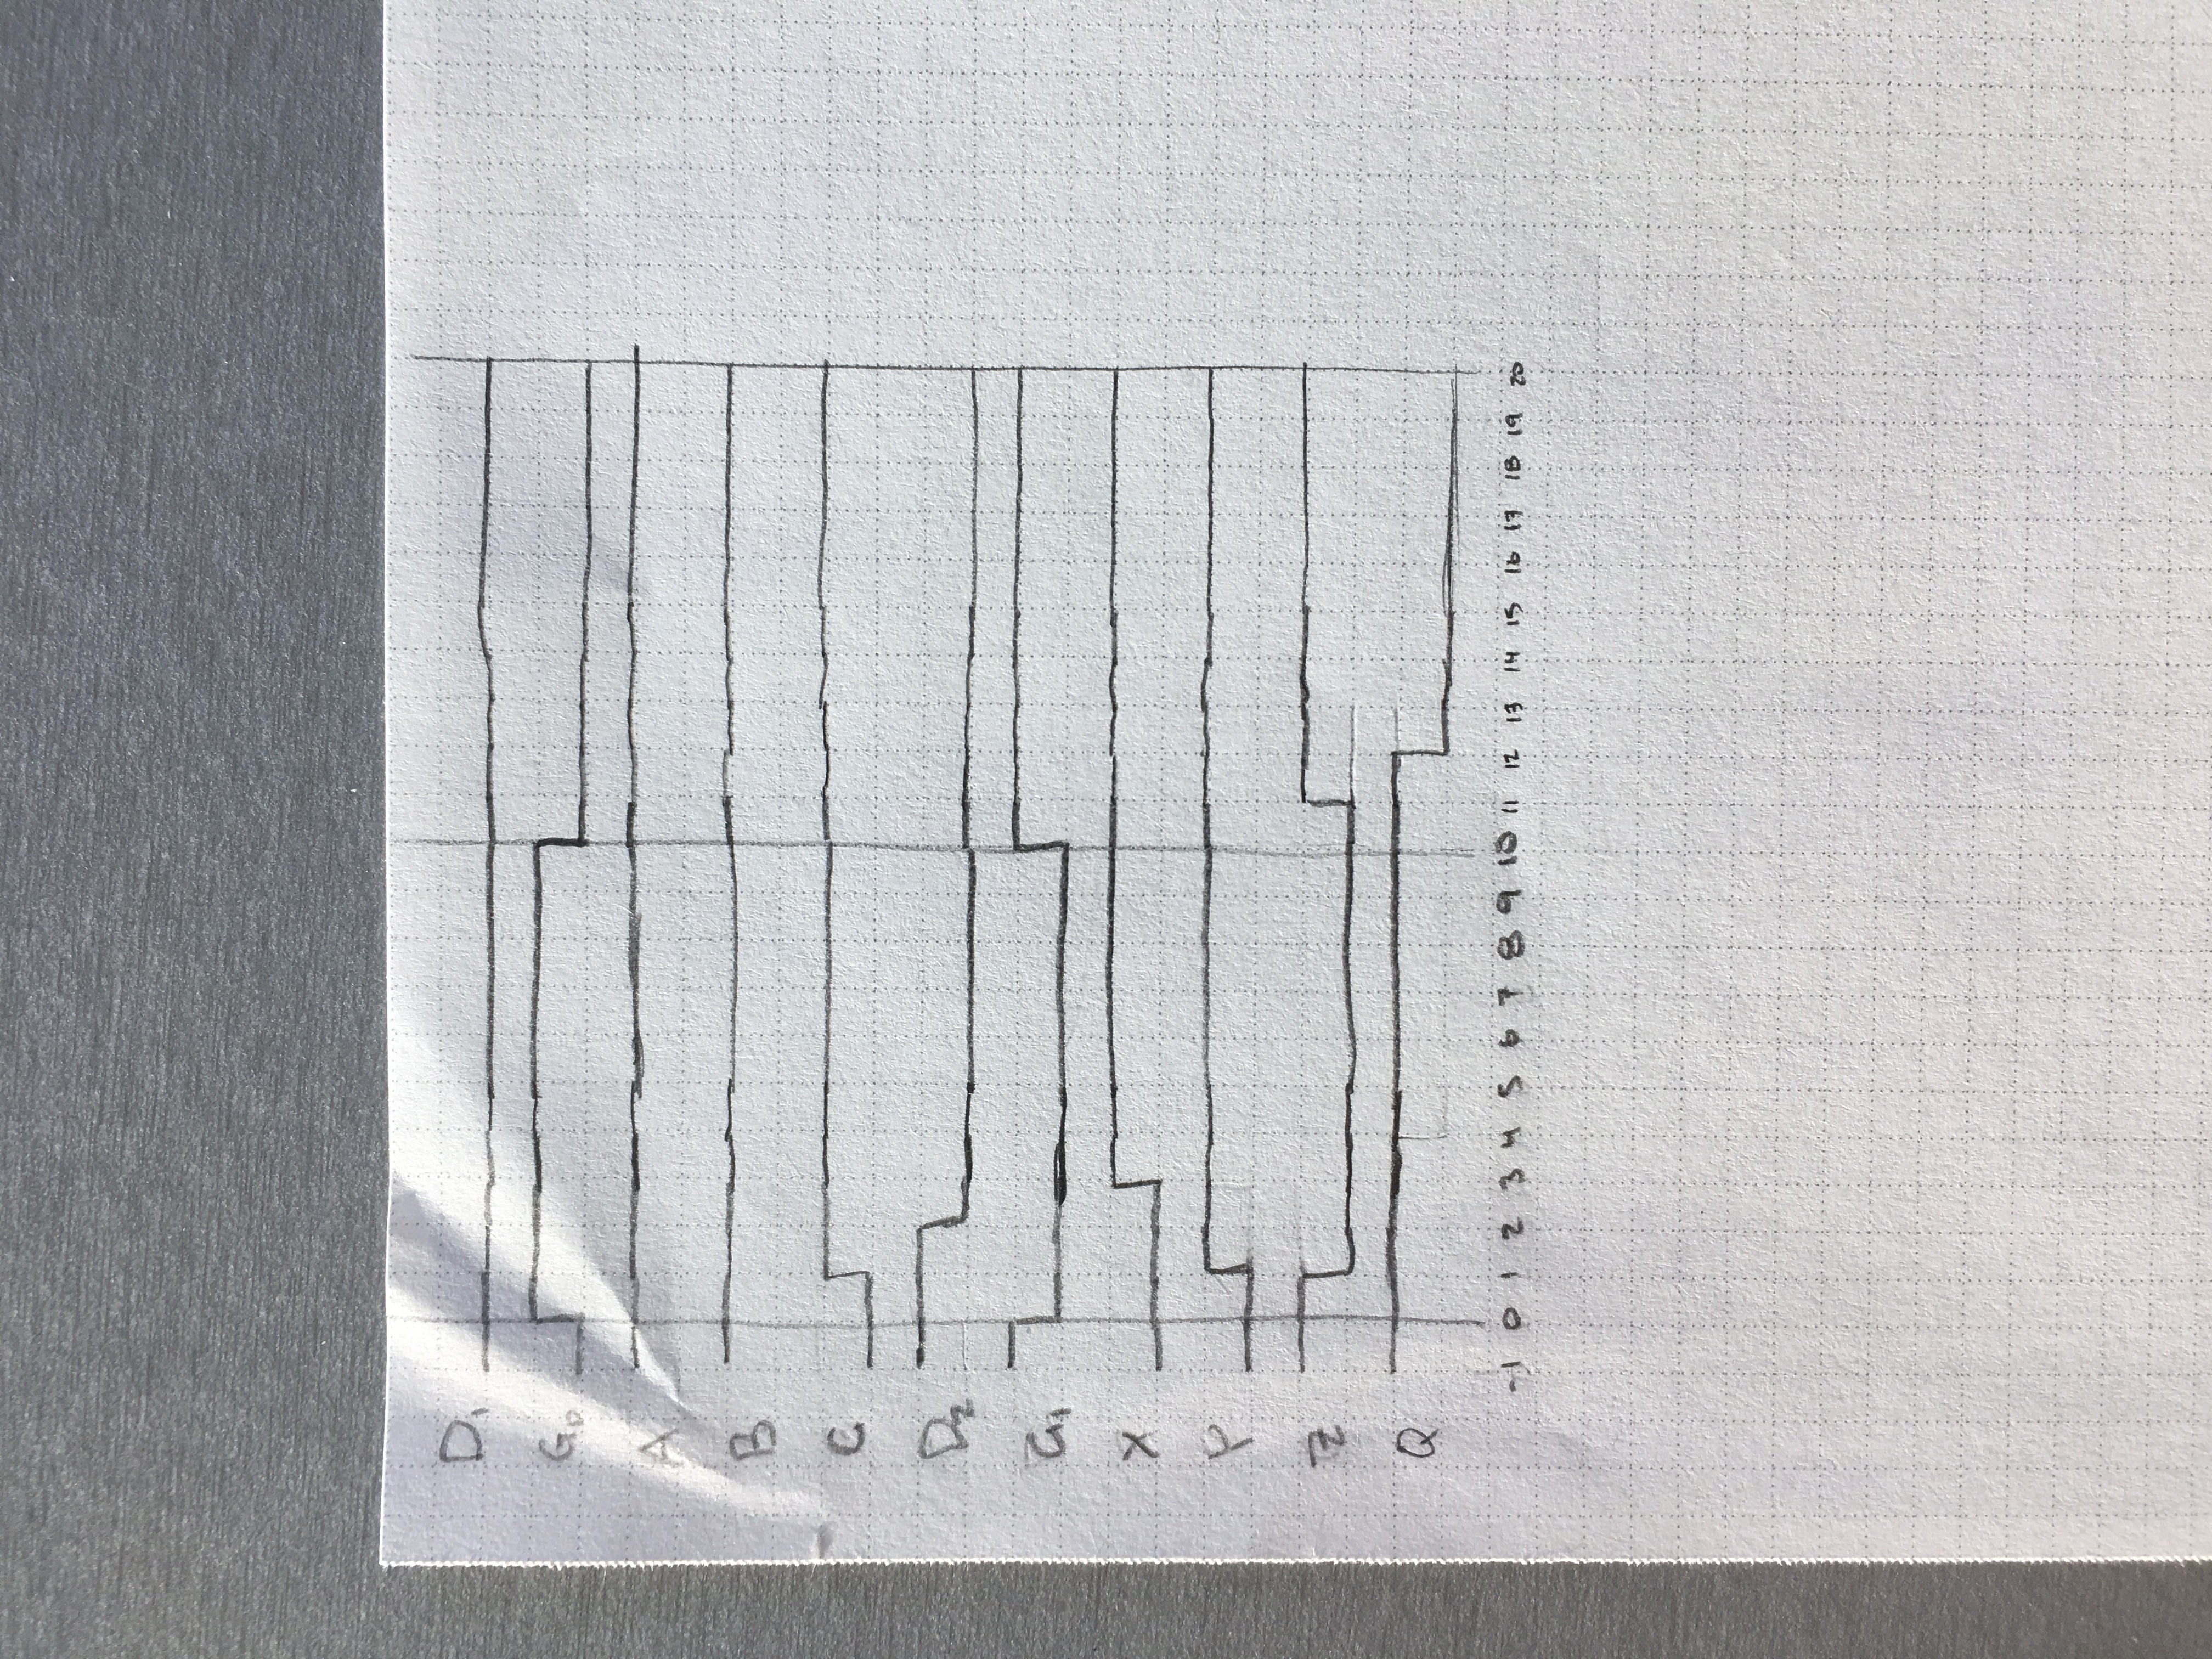 D₁
G₀
A
B
C
D₂
G₁
X
Y
Z
Q
-1 0 1 2 3 4 5 6 7 8 9 10 11 12 13 14 15 16 17 18 19 20